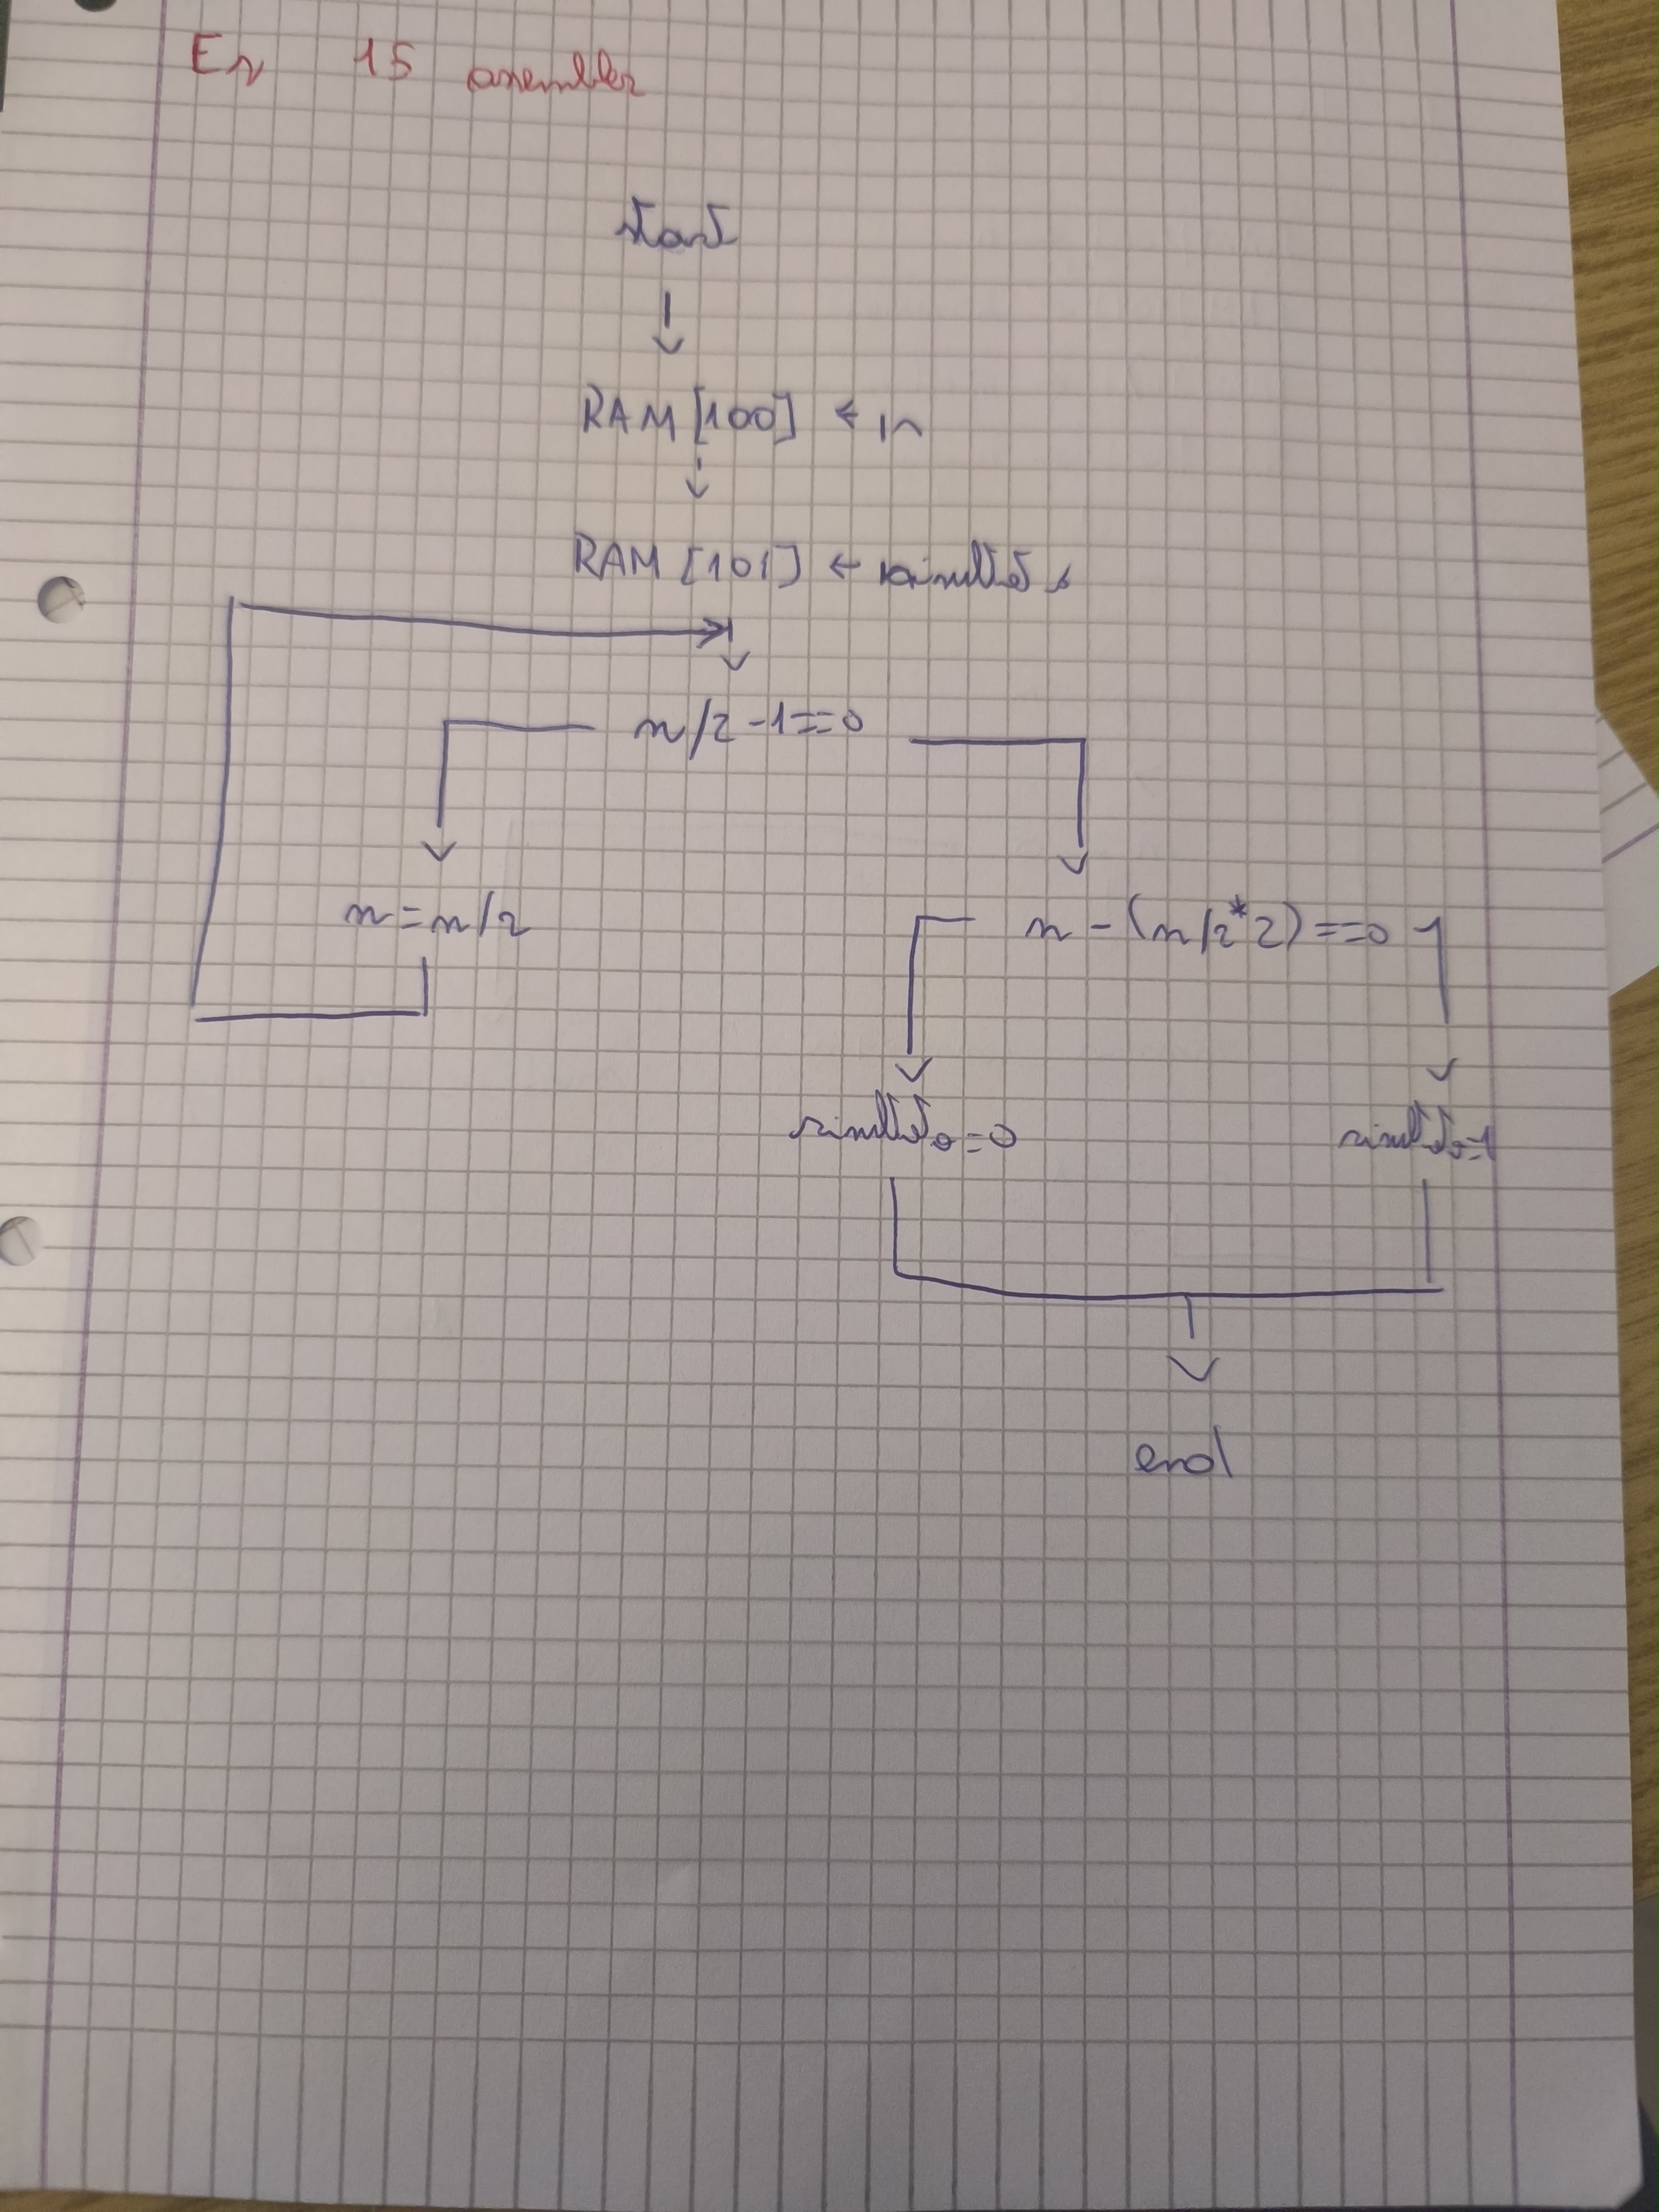 Es 15 assembler
start
RAM [100] ← n
RAM [101] ← risultato
n/2 -1==0
n=n/2
n - (n/2*2) ==0
risultato=0
risultato=1
end